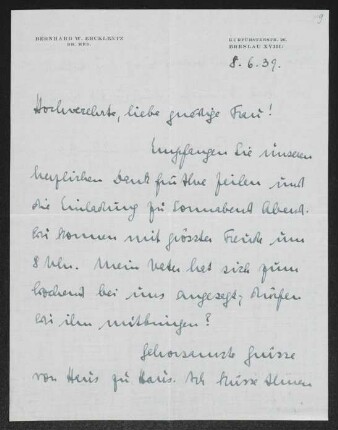 9
BERNHARD W. ZOCKLERTZ
DR. MED.
KURFÜRSTENSTR. 26
BRESLAU XVIII
8. 6. 39.
Hochverehrte, liebe gnädige Frau!
Empfangen Sie unseren
herzlichen Dank für Ihre Zeilen und
die Einladung zu Sonnabend Abend.
Wir kommen mit grösster Freude um
8 Uhr. Mein Vater hat sich zum
Wochend bei uns angesagt; dürfen
Wir ihn mitbringen?
Gehorsamste Grüsse
von Haus zu Haus. Ich küsse Ihnen